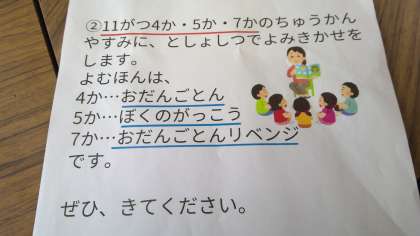 ②11がつ4か・5か・7かのちゅうかん
やすみに、としょしつでよみきかせを
します。
よむほんは、
4か…おだんごとん
5か…ぼくのがっこう
7か…おだんごとんリベンジ
です。
ぜひ、きてください。